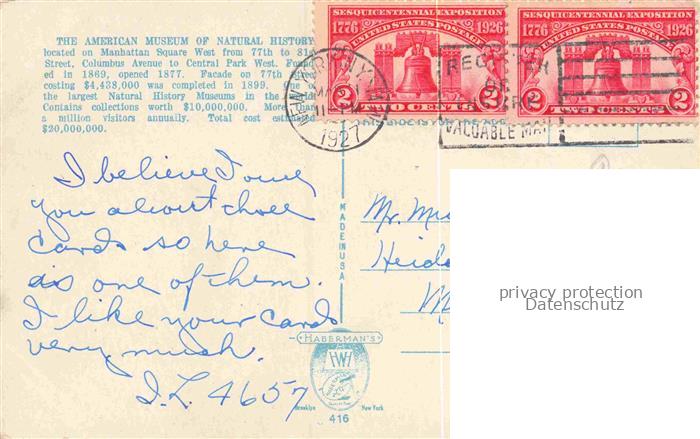 THE AMERICAN MUSEUM OF NATURAL HISTORY
located on Manhattan Square West from 77th to 81s
Street, Columbus Avenue to Central Park West. Found
ed in 1869, opened 1877. Facade on 77th
costing $4,438,000 was completed in 1899. One of
the largest Natural History Museums in the
Contains collections worth $10,000,000. More than
a million visitors annually. Total cost estimated
$20,000,000.
SESQUICENTENNIAL EXPOSITION
1776 1926
UNITED STATES POSTAGE
2 TWO CENTS 2
SESQUICENTENNIAL EXPOSITION
1776 1926
UNITED STATES POSTAGE
2 TWO CENTS 2
NEW YORK, N.Y.
1927
VALUABLE MAIL
I believe I owe
you about three
cards so here
is one of them.
I like your cards
very much.
I.L. 4657
MADE IN USA
Mr.
Heid
privacy protection
Datenschutz
HABERMAN'S
Brooklyn New York
416